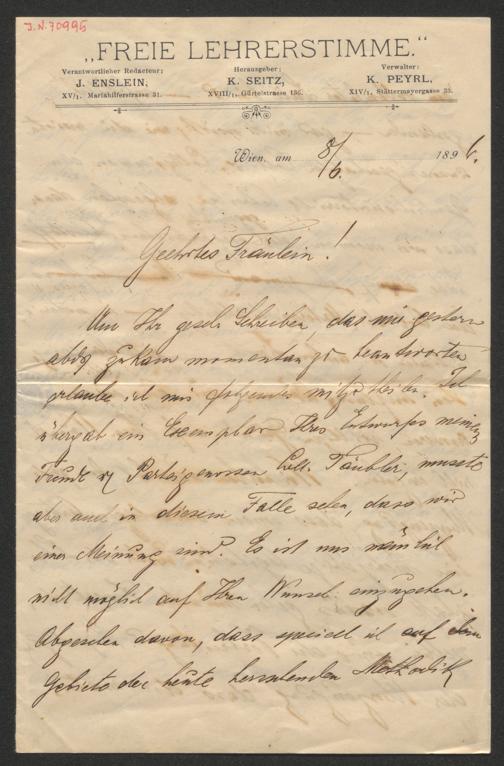 J.N. 70995
„FREIE LEHRERSTIMME.“
Verantwortlicher Redacteur:
J. ENSLEIN,
XV/1, Mariahilferstrasse 31.
Herausgeber:
K. SEITZ,
XVIII/1, Gürtelstrasse 136.
Verwalter:
K. PEYRL,
XIV/1, Stättermayergasse 35.
Wien, am 8/6. 1896.
Geehrtes Fräulein!
Um Ihr gesch. Schreiben, das mir gestern
abds zukam momentan zu beantworten
erlaube ich mir folgendes mitzutheilen. Ich
übergab ein Exemplar Ihres Entwurfes meinem
Freund u Parteigenossen Coll. Täubler, musste
aber auch in diesem Falle sehen, dass wir
einer Meinung sind. Es ist uns nämlich
nicht möglich auf Ihren Wunsch einzugehen.
Abgesehen davon, dass speciell ich auf dem
Gebiete der heute herrschenden Methodik